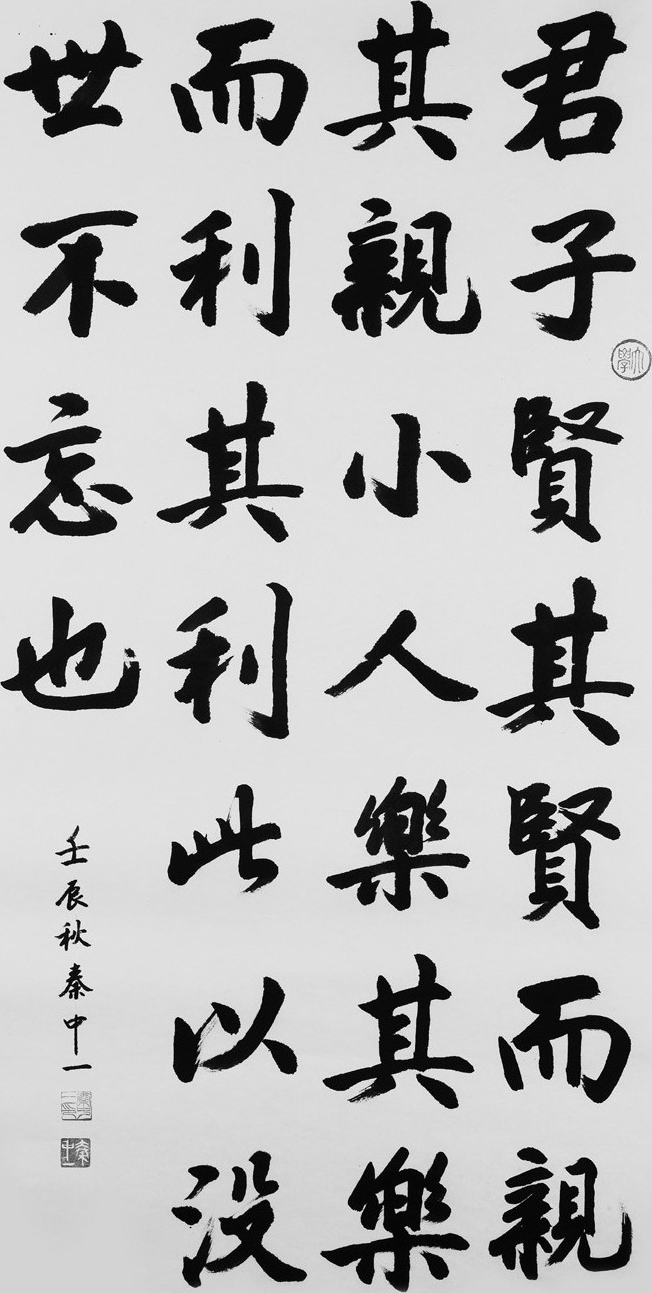 君子賢其賢而親
其親小人樂其樂
而利其利此以没
世不忘也
壬辰秋秦中一